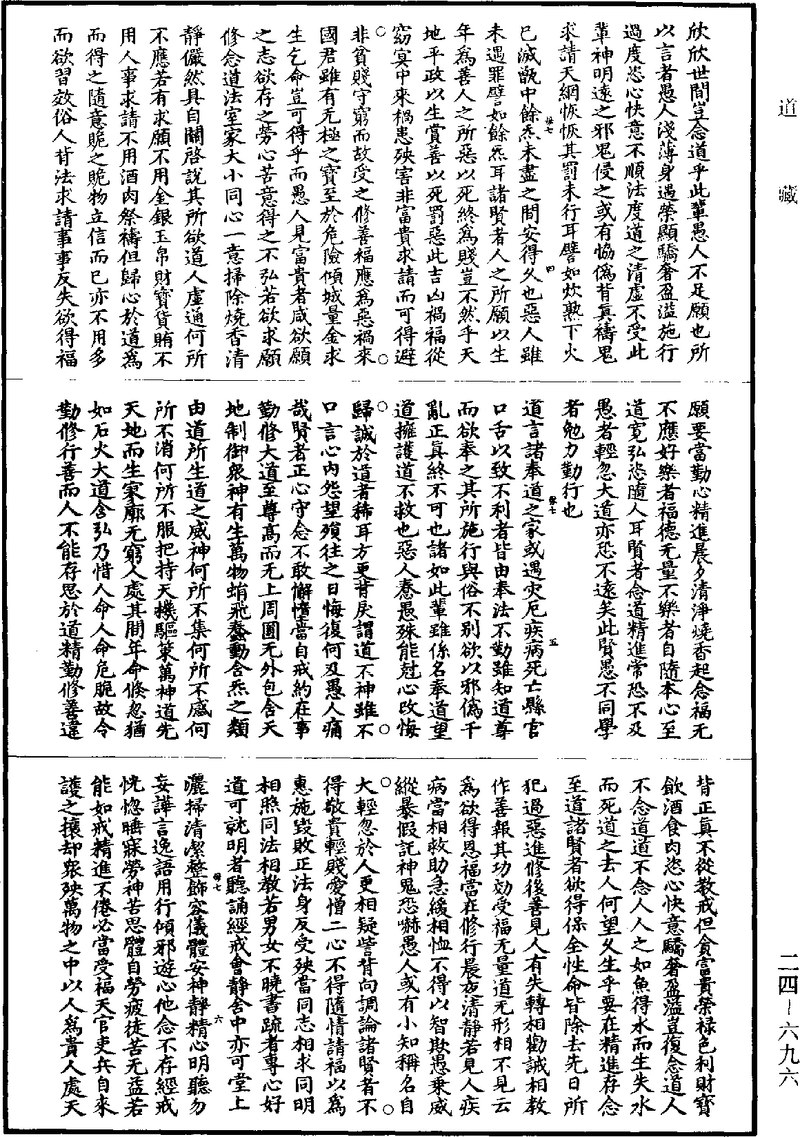 道藏
欣欣世間豈念道乎此輩愚人不足願也所
以言者愚人淺薄身遇榮顯驕奢盈溢施行
過度恣心快意不順法度道之清虛不受此
輩神明遠之邪鬼侵之或有恊僞背真禱鬼
求請天網恢恢其罰未行耳譬如炊熟下火
已滅甑中餘炁未盡之間安得久也惡人雖
未遇罪譬如餘炁耳諸賢者人之所願以生
年為善人之所惡以死終為賤豈不然乎天
地平政以生賞善以死罰惡此吉凶禍福從
窈冥中來禍患殃害非富貴求請而可得避
非貧賤守窮而故受之修善福應為惡禍來
國君雖有无極之寶至於危險傾城量金求
生乞命豈可得乎而愚人見富貴者咸欲願
之志欲存之勞心苦意得之不弘若欲求願
修念道法室家大小同心一意掃除燒香清
靜儼然具自關啓說其所欲道人虛通何所
不應若有求願不用金銀玉帛財寶貨賄不
用人事求請不用酒肉祭禱但歸心於道為
而得之隨意賧之賧物立信而已亦不用多
而欲習效俗人背法求請事事反失欲得福
願要當勤心精進晨夕清淨燒香起念福无
不應好樂者福德无量不樂者自隨本心至
道寬弘恣隨人耳賢者念道精進常恐不及
愚者輕忽大道亦恐不遠矣此賢愚不同學
者勉力勤行也
道言諸奉道之家或遇灾厄疾病死亡縣官
口舌以致不利者皆由奉法不勤雖知道尊
而欲奉之其所施行與俗不別欲以邪僞干
亂正真終不可也諸如此輩雖係名奉道望
道擁護道不救也惡人惷愚殊能尅心改悔
歸誠於道者稀耳方更背戾謂道不神雖不
口言心內怨望殞往之日悔復何及愚人痛
哉賢者正心守念不敢懈惰當自戒約在事
勤修大道至尊高而无上周圓无外包含天
地制御衆神有生萬物蜎飛蠢動含炁之類
由道所生道之威神何所不集何所不感何
所不消何所不服把持天機驅策萬神道先
天地而生寂廓无窮人處其間年命倐忽猶
如石火大道含弘乃惜人命人命危脆故令
勤修行善而人不能存思於道精勤修善違
背正真不從教戒但貪富貴榮祿色利財寶
飲酒食肉恣心快意驕奢盈溢豈復念道人
不念道道不念人人之如魚得水而生失水
而死道之去人何望久生乎要在精進存念
至道諸賢者欲得係全性命皆除去先日所
犯過惡進修後善見人有失轉相勸誠相教
作善報其功効受福无量道无形相不見云
為欲得恩福當在修行晨夜清靜若見人疾
病當相救助急緩相恤不得以智欺愚乗威
縱暴假託神鬼恐嚇愚人或有小知稱名自
大輕忽於人更相疑訾背向調論諸賢者不
得敬貴輕賤愛憎二心不得隨情請福以為
惠施毀敗正法身反受殃當同志相求同明
相照同法相教若男女不曉書疏者專心好
道可就明者聽誦經戒會靜舍中亦可堂上
灑掃清潔整飾容儀體安神靜精心明聽勿
妄譁言逸語用行傾邪遊心他念不存經戒
恍惚睡寐勞神苦思體自勞疲徒苦无益若
能如戒精進不倦必當受福天官吏兵自來
護之攘却衆殃萬物之中以人為貴人處天
二四—六九六